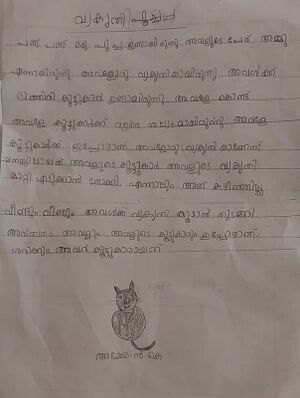 വൃകൃതിപൂച്ച
പണ്ട് പണ്ട് ഒരു പൂച്ച ഉണ്ടായിരുന്നു അവളുടെ പേര് അമ്മു
എന്നായിരുന്നു അവളൊരു വൃകൃതിയായിരുന്നു അവൾക്ക്
ഒത്തിരി കൂട്ടുകാർ ഉണ്ടായിരുന്നു അവളെ കൊണ്ട്
അവളെ കൂട്ടുകാർക്ക് വളരെ ശല്യമായിരുന്നു അവളെ
കൂട്ടുകാർക്ക് ഇപ്പോഴാണ് അവളോരു വൃകൃതി യാണെന്ന്
മനസ്സിലായത് അവളുടെ കൂട്ടുകാർ അവളുടെ വൃകൃതി
മാറ്റി എടുക്കാൻ നോക്കി. എന്നാലും അത് കഴിഞ്ഞില്ല
വീണ്ടും വീണ്ടും അവൾക്ക് വൃകൃതി കൂടാൻ തുടങ്ങി
അവസാനം അവളും അവളുടെ കൂട്ടുകാരും ഇപ്പോഴാണ്
ശരിക്കും അവർ കൂട്ടുകാരായത്
അമേയ ൻ കെ